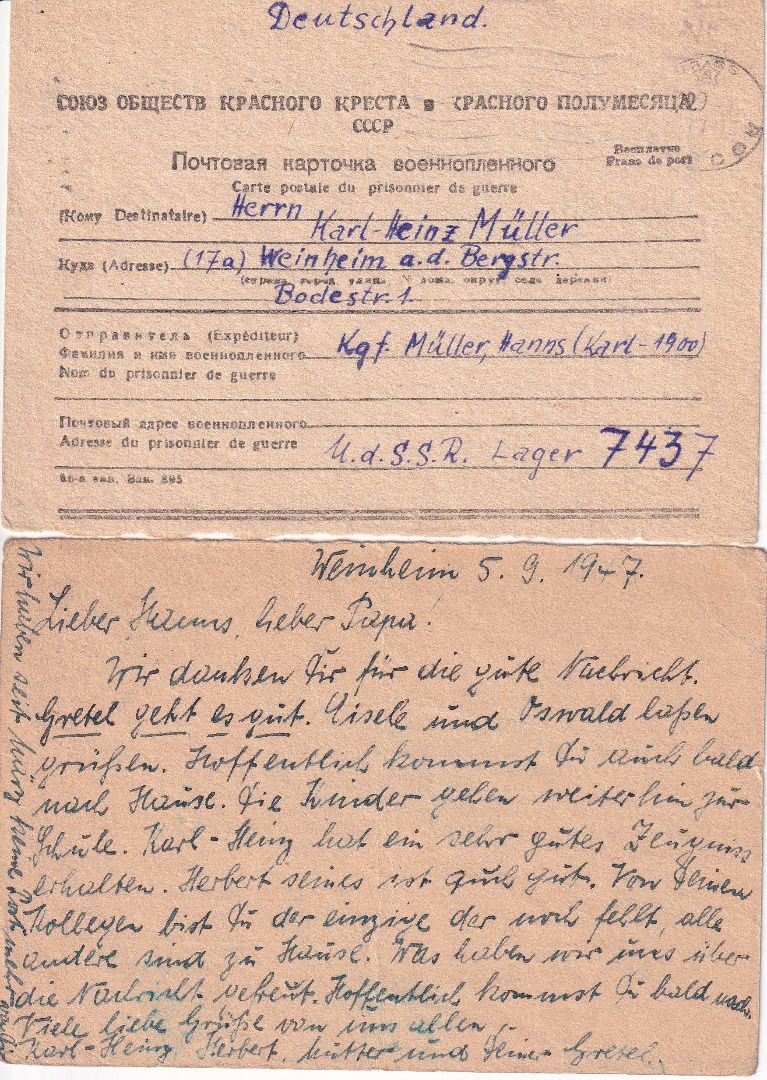 Deutschland.
СОЮЗ ОБЩЕСТВ КРАСНОГО КРЕСТА и КРАСНОГО ПОЛУМЕСЯЦА
СССР
Почтовая карточка военнопленного
Бесплатно
Franc de port
Carte postale du prisonnier de guerre
(Кому Destinataire) Herrn
Karl-Heinz Müller
Куда (Adresse) (17a) Weinheim a.d. Bergstr.
(страна, город, улица, № дома, округ, село, деревня)
Bodestr. 1.
Отправитель (Expéditeur)
Фамилия и имя военнопленного Kgf. Müller, Hanns (Karl-1900)
Nom du prisonnier de guerre
Почтовый адрес военнопленного
Adresse du prisonnier de guerre U.d.S.S.R. Lager 7437
Зак. 895
Weinheim 5. 9. 1947.
Lieber Hanns, lieber Papa!
Wir danken Dir für die gute Nachricht.
Gretel geht es gut. Gisele und Oswald laßen
grüßen. Hoffentlich kommst Du auch bald
nach Hause. Die Kinder gehen weiterhin zur
Schule. Karl-Heinz hat ein sehr gutes Zeugniss
erhalten. Herbert seines ist auch gut. Von Deinen
Kollegen bist Du der einzige der noch fehlt, alle
andere sind zu Hause. Was haben wir uns über
die Nachricht gefreut. Hoffentlich kommst Du bald nach.
Viele liebe Grüße von uns allen
Karl-Heinz, Herbert, Mutter und Deine Gretel.
Wir haben seit März keine Post mehr